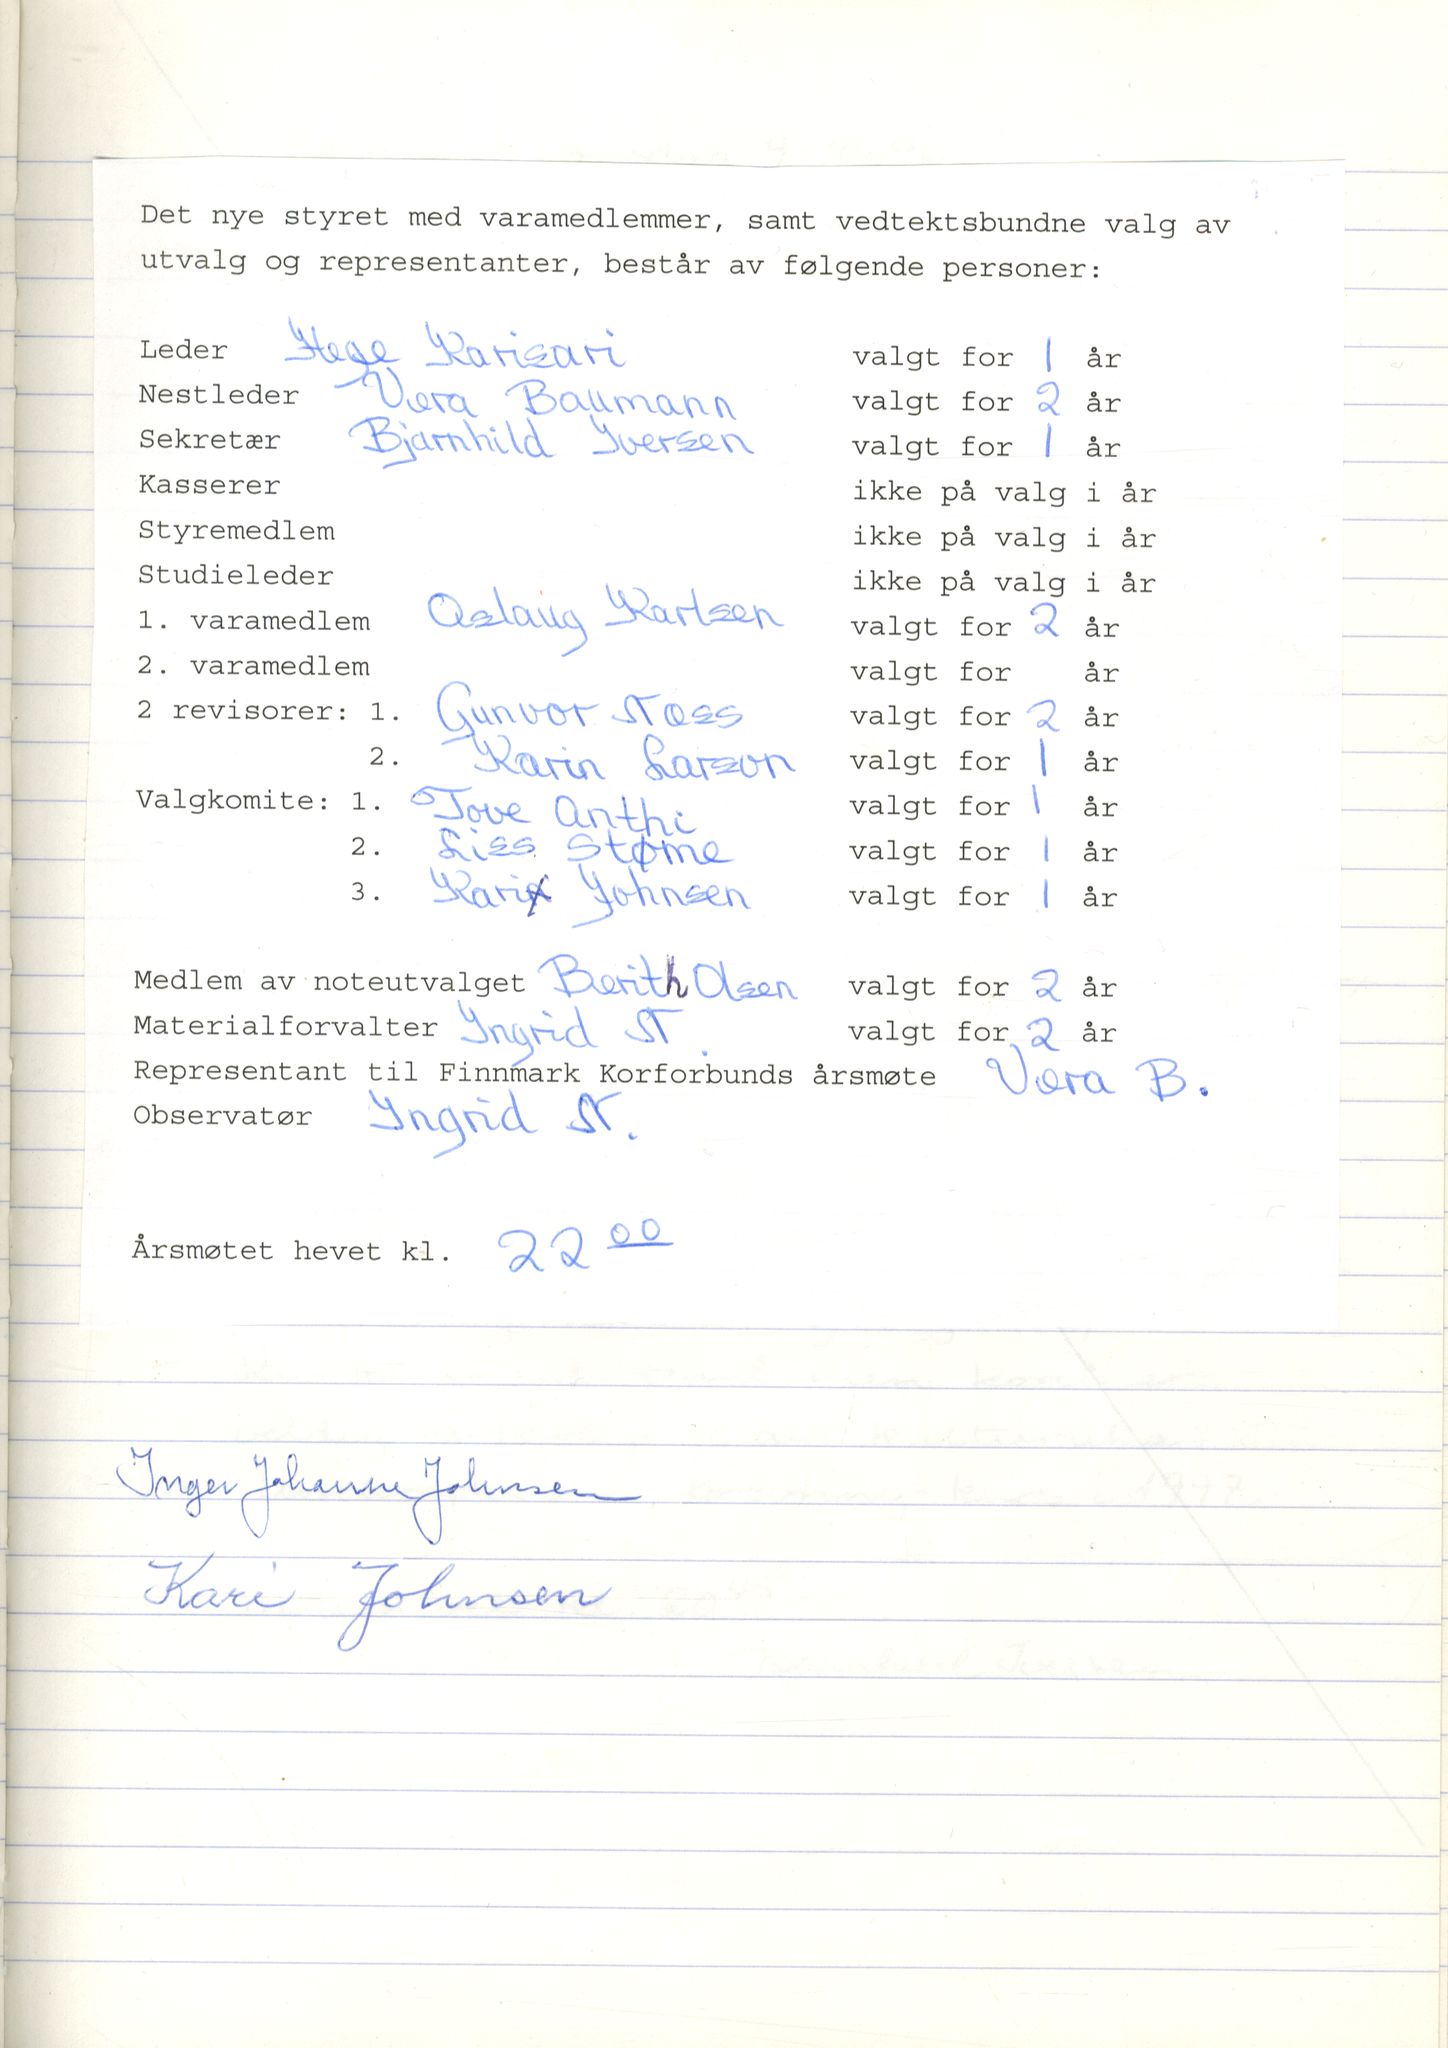 Det nye styret med varamedlemmer, samt vedtektsbundne valg av
utvalg og representanter, består av følgende personer:
Leder Hege Karisari valgt for 1 år
Nestleder Vera Baumann valgt for 2 år
Sekretær Bjarnhild Iversen valgt for 1 år
Kasserer ikke på valg i år
Styremedlem ikke på valg i år
Studieleder ikke på valg i år
1. varamedlem Aslaug Karlsen valgt for 2 år
2. varamedlem valgt for år
2 revisorer: 1. Gunvor Næss valgt for 2 år
2. Karin Larson valgt for 1 år
Valgkomite: 1. Tove Anthi valgt for 1 år
2. Liss Støme valgt for 1 år
3. Kari Johnsen valgt for 1 år
Medlem av noteutvalget Berith Olsen valgt for 2 år
Materialforvalter Ingrid N. valgt for 2 år
Representant til Finnmark Korforbunds årsmøte Vera B.
Observatør Ingrid N.
Årsmøtet hevet kl. 22 00
Inger Johanne Johnsen
Kari Johnsen